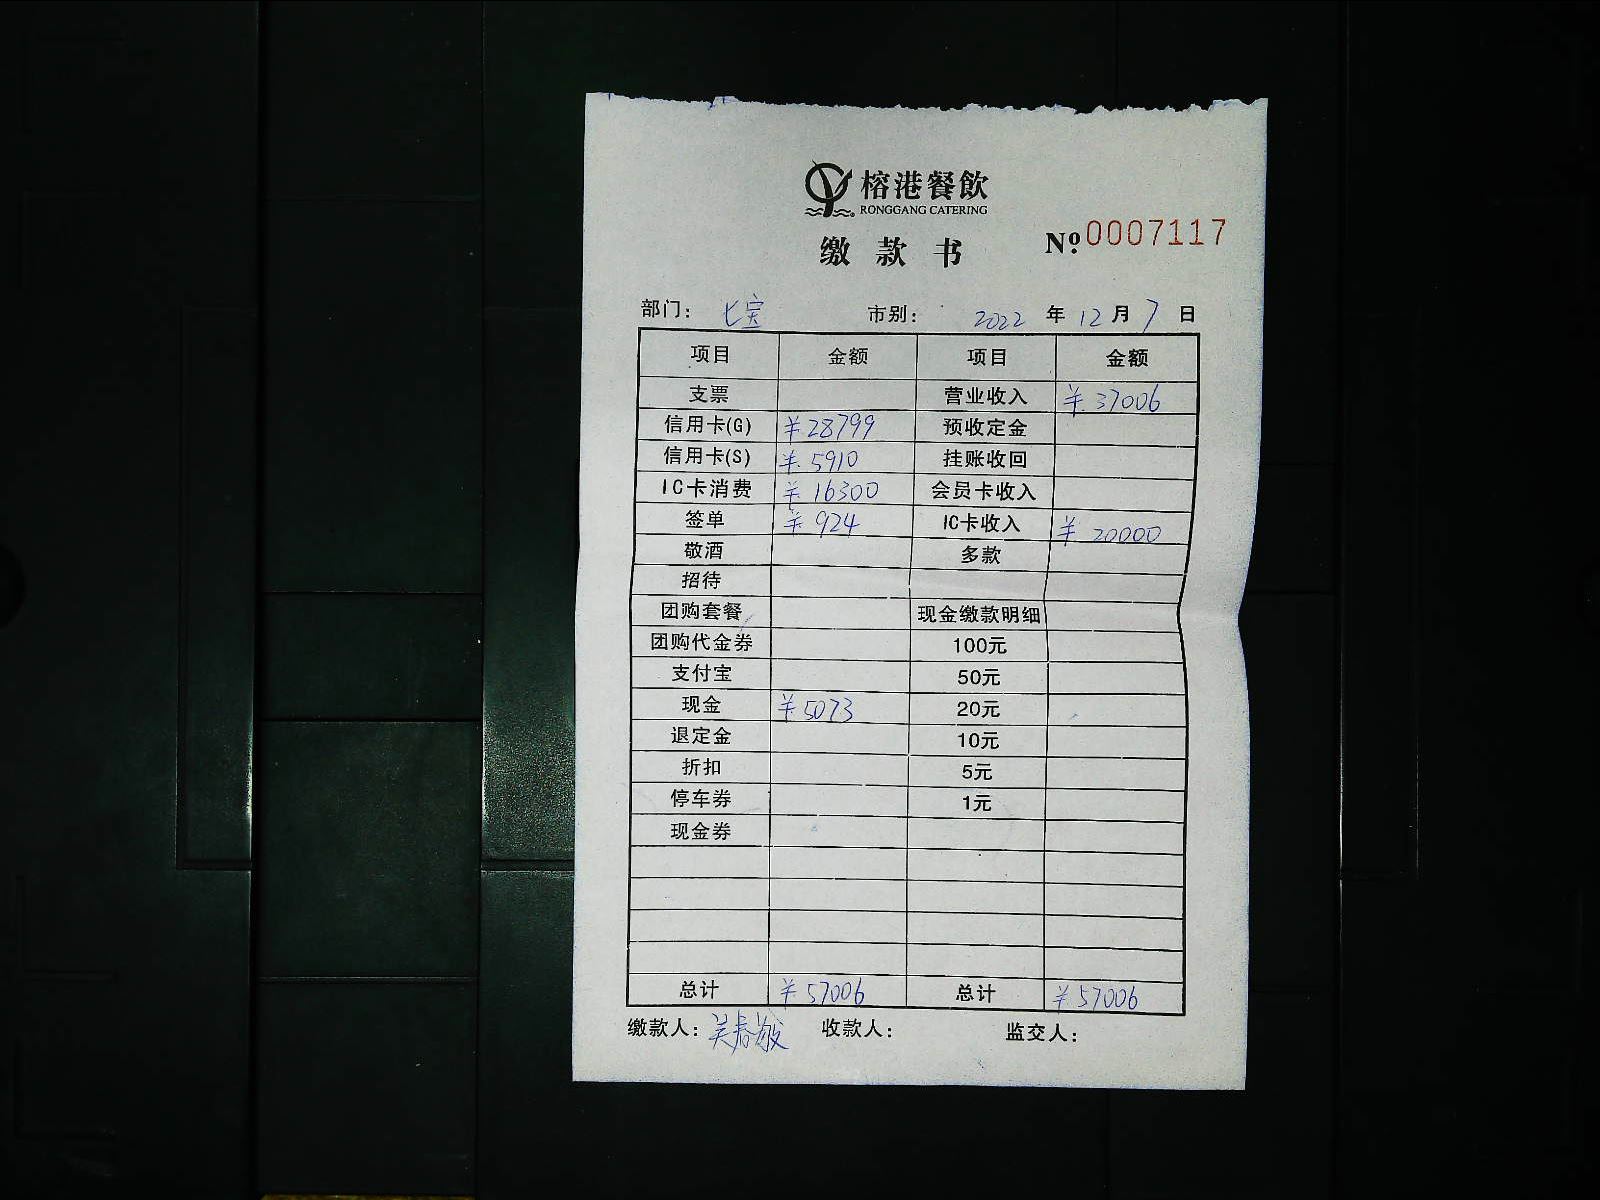 榕港餐飲
RONGGANG CATERING
缴款书
№ 0007117
部门： 七宝 市别： 2022 年 12 月 7 日
项目 金额 项目 金额
支票 营业收入 ¥37006
信用卡(G) ¥28799 预收定金
信用卡(S) ¥5910 挂账收回
IC卡消费 ¥16300 会员卡收入
签单 ¥924 IC卡收入 ¥20000
敬酒 多款
招待
团购套餐 现金缴款明细
团购代金券 100元
支付宝 50元
现金 ¥5073 20元
退定金 10元
折扣 5元
停车券 1元
现金券
总计 ¥57006 总计 ¥57006
缴款人： 收款人： 监交人：